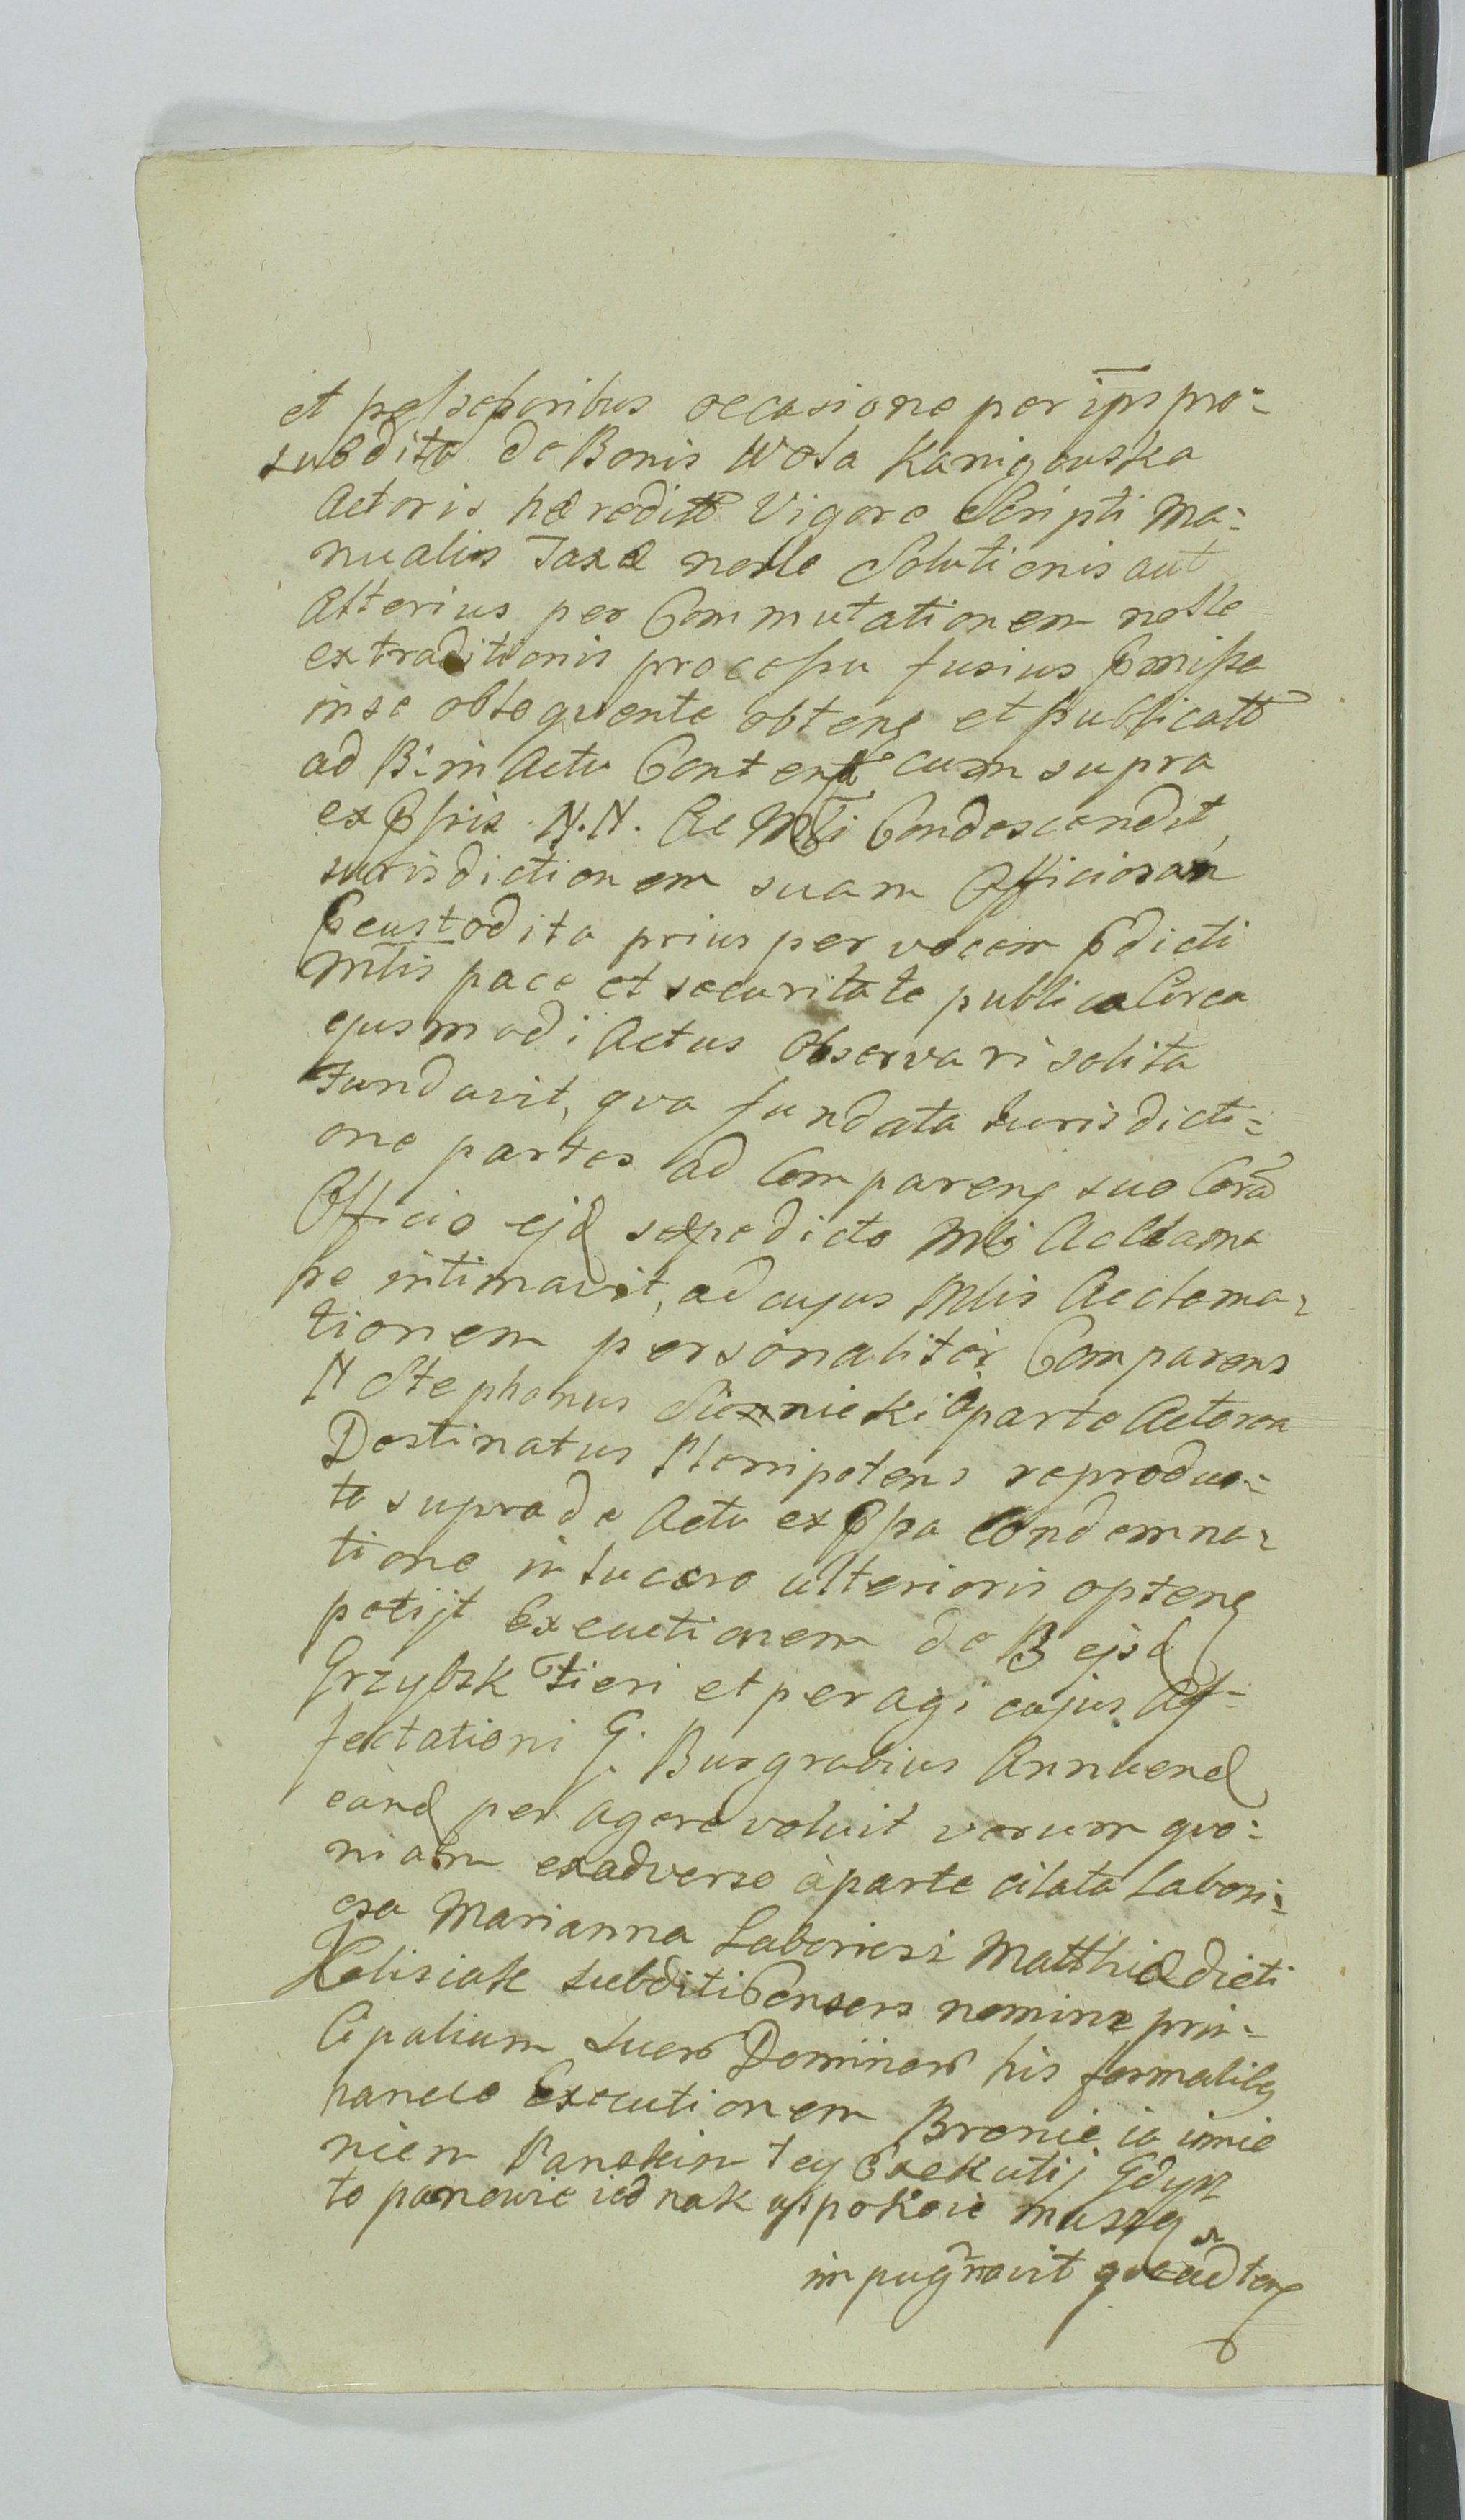 et possessoribus occasione per ips pro-
subdito de Bonis Wola Kanigowska
Actoris hæredit Vigore Scripti Ma-
nualis Taxæ nolle Solutionis aut
Alterius per Commutationem nolle
extraditionis processu fusius
in se obloquente obteng et publicatt
ad B: in Actu Content cum supra
N.N. Ac Mli Condescendit,
Jurisdictionem suam Officiosam
Pcustodita prius per vocem Pdicti
Mlis pace et securitate publica Circa
ejusmodi Actus Observari solita
Fundavit, qva fundata Jurisdicti-
one partes ad Compareng suo Corã
Officio ejd sæpedicto Mli Acclama
re intimavit, ad cujus Mlis Acclama-
tionem personaliter Comparens
N Stephanus à parte Actorea
Destinatus Plenipotens reproduc-
to suprade Actu ex Condemna-
tione in lucro ulterioris opteng
petijt Executionem de B ejsd
Grzybsk Fieri et peragi cujus Af-
fectationi G. Burgrabius Annuend
eand per agere voluit verum qvo-
niam exadverso à parte citata Labori-
osa Marianna Laboriosi Matthiæ dicti
Kolisiak subditi Consors nomine prin-
Cipalium suor Dominor his formalibg
hancce Executionem Bronie ia imie
niem Panskim tey Exekutij Gdysz
to panowie iednak uspokoic muszą
impugnavit